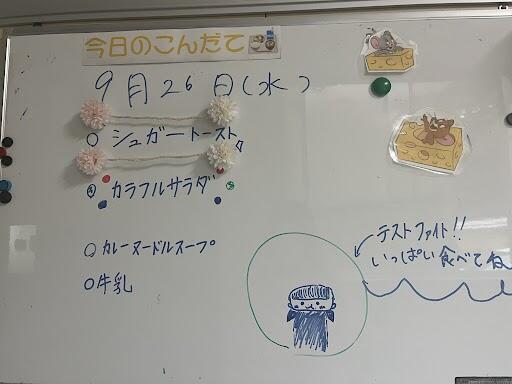 今日のこんだて
9月26日(水)
○シュガートースト
○カラフルサラダ
○カレーヌードルスープ
○牛乳
テストファイト!!
いっぱい食べてね